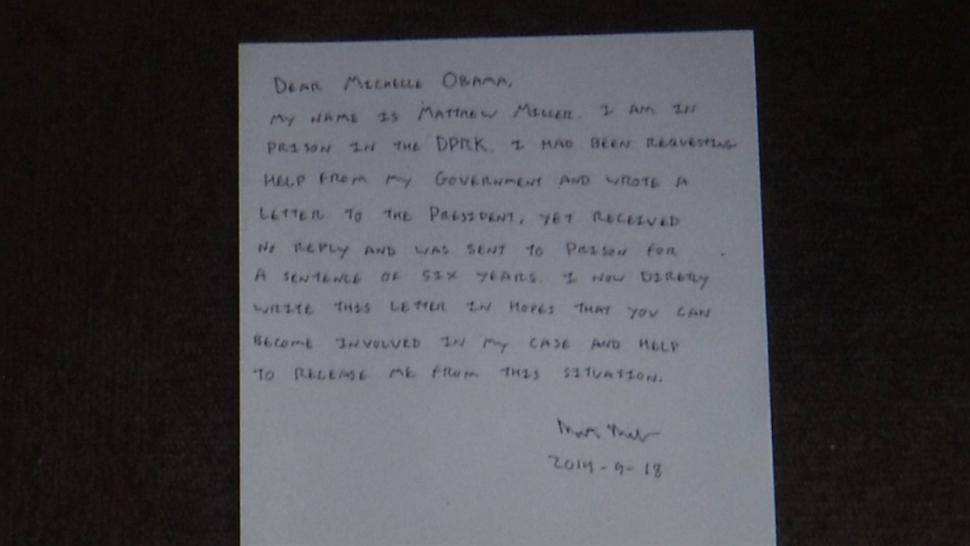 DEAR MICHELLE OBAMA,
MY NAME IS MATTHEW MILLER. I AM IN
PRISON IN THE DPRK. I HAD BEEN REQUESTING
HELP FROM MY GOVERNMENT AND WROTE A
LETTER TO THE PRESIDENT, YET RECEIVED
NO REPLY AND WAS SENT TO PRISON FOR
A SENTENCE OF SIX YEARS. I NOW DIRETLY
WRITE THIS LETTER IN HOPES THAT YOU CAN
BECOME INVOLVED IN MY CASE AND HELP
TO RELEASE ME FROM THIS SITUATION.
2014-9-18